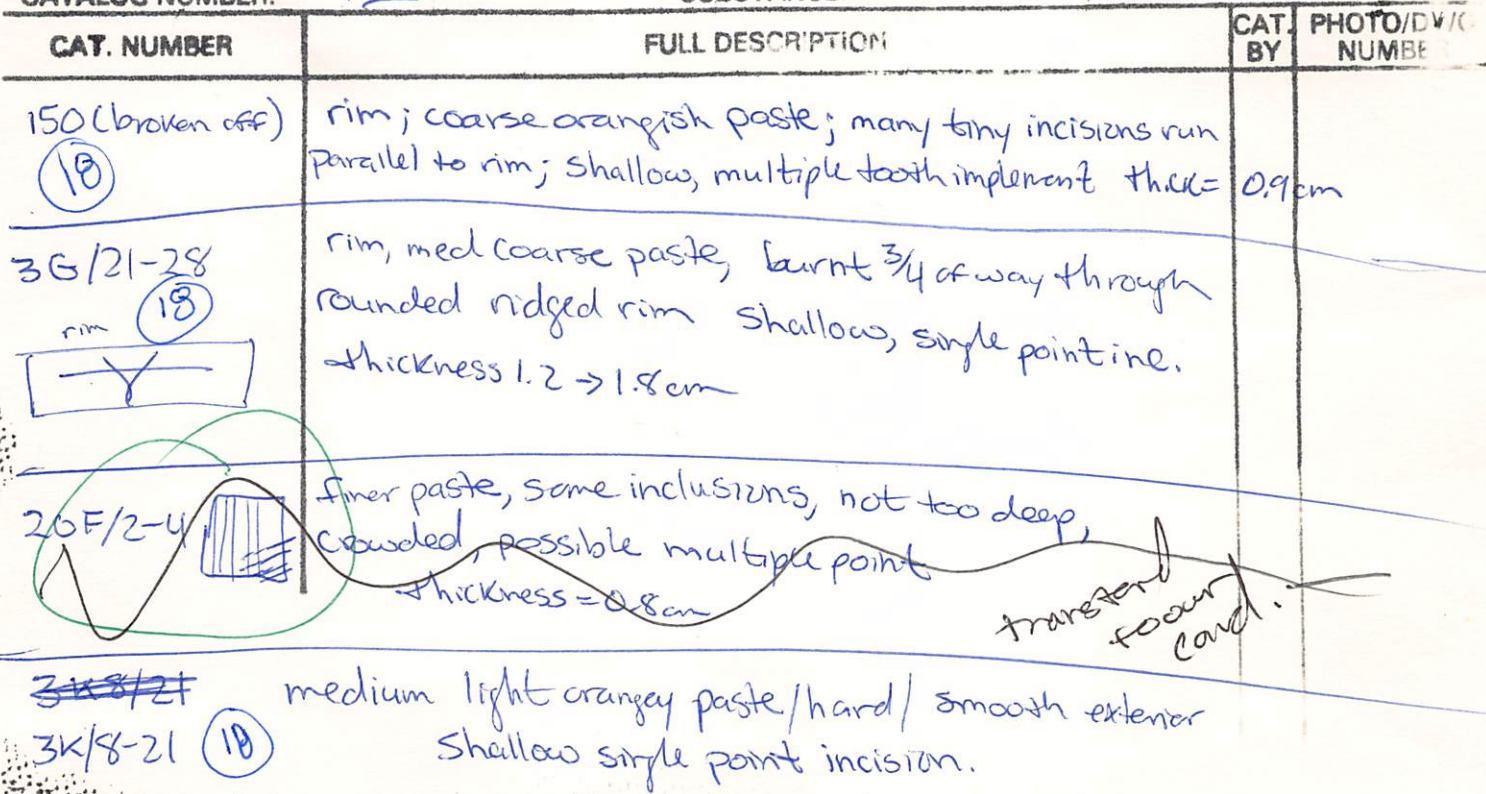 CATALOG NUMBER:
CAT. NUMBER FULL DESCRIPTION CAT. BY PHOTO/DV/C NUMBE
150 (broken off)
18
rim; coarse orangish paste; many tiny incisions run
parallel to rim; shallow, multiple tooth implement thick= 0.9cm
3G/21-28
18
rim
rim, med coarse paste, burnt 3/4 of way through
rounded ridged rim shallow, single point inc.
thickness 1.2 → 1.8cm
20F/2-4
finer paste, some inclusions, not too deep,
crowded, possible multiple point
thickness = 0.8cm
card.
3K8/21
3K/8-21 18
medium light orangey paste/hard/ smooth exterior
shallow single point incision.